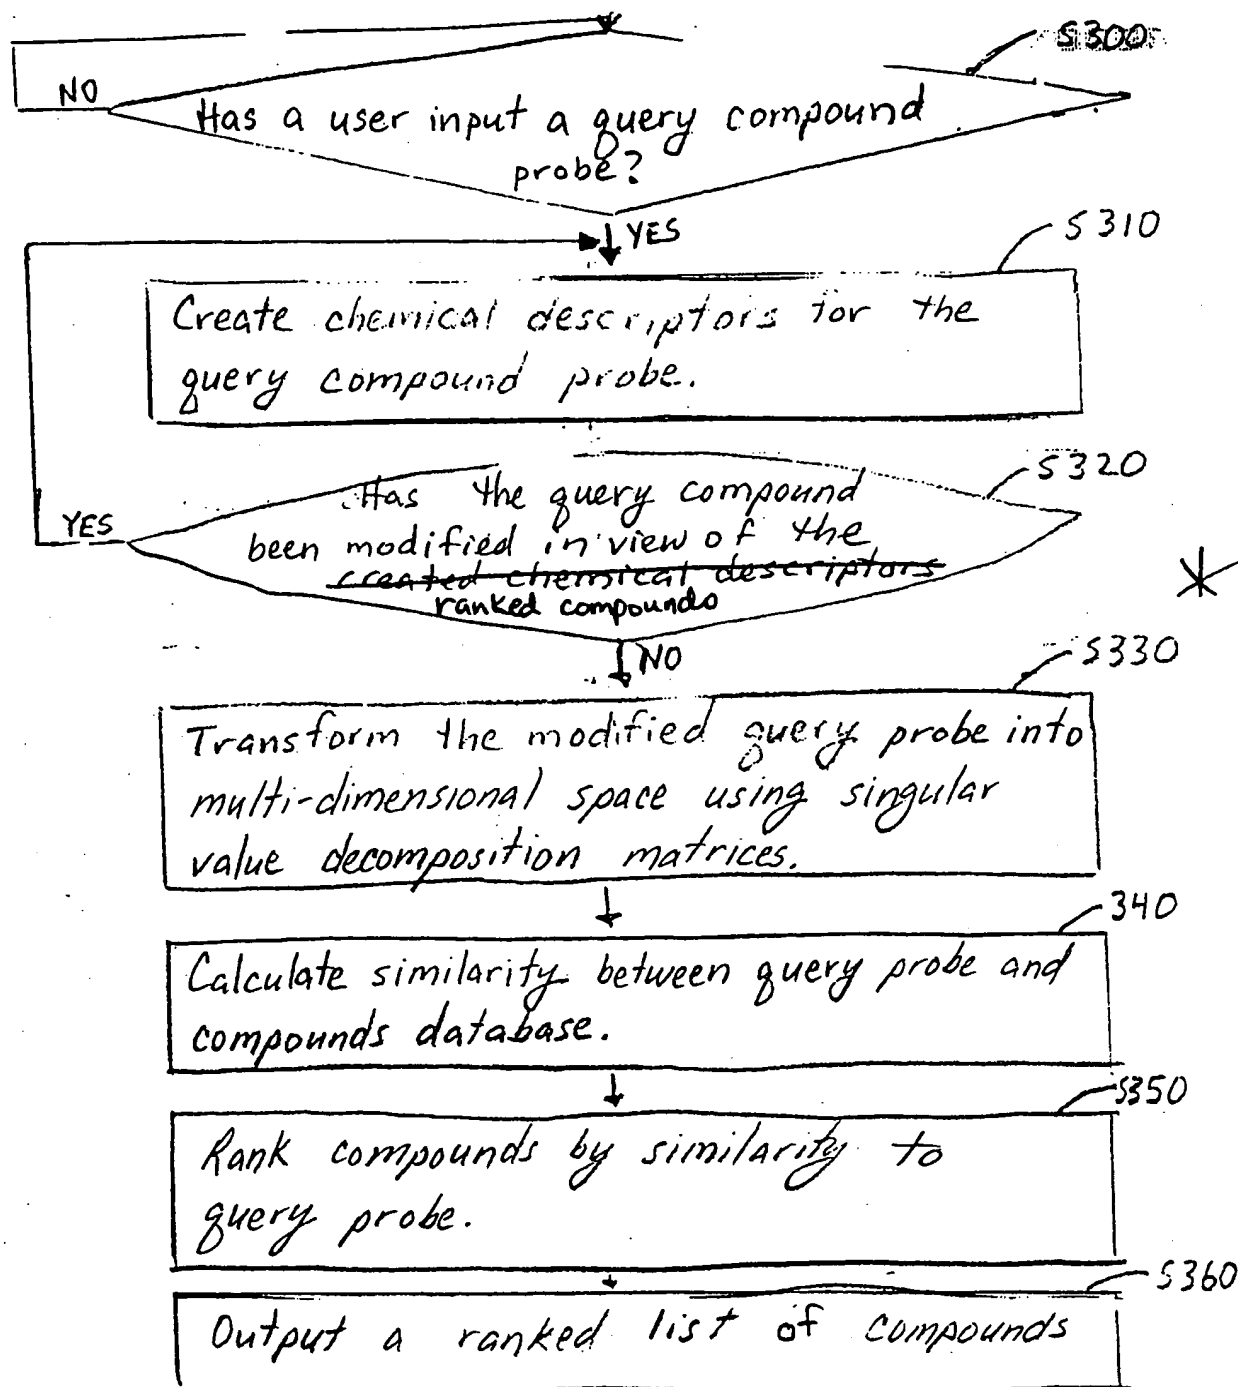 S300
NO
Has a user input a query compound
probe?
YES
S310
Create chemical descriptors for the
query compound probe.
S320
YES
Has the query compound
been modified in view of the
created chemical descriptors
ranked compounds
NO
S330
Transform the modified query probe into
multi-dimensional space using singular
value decomposition matrices.
340
Calculate similarity between query probe and
compounds database.
S350
Rank compounds by similarity to
query probe.
S360
Output a ranked list of compounds